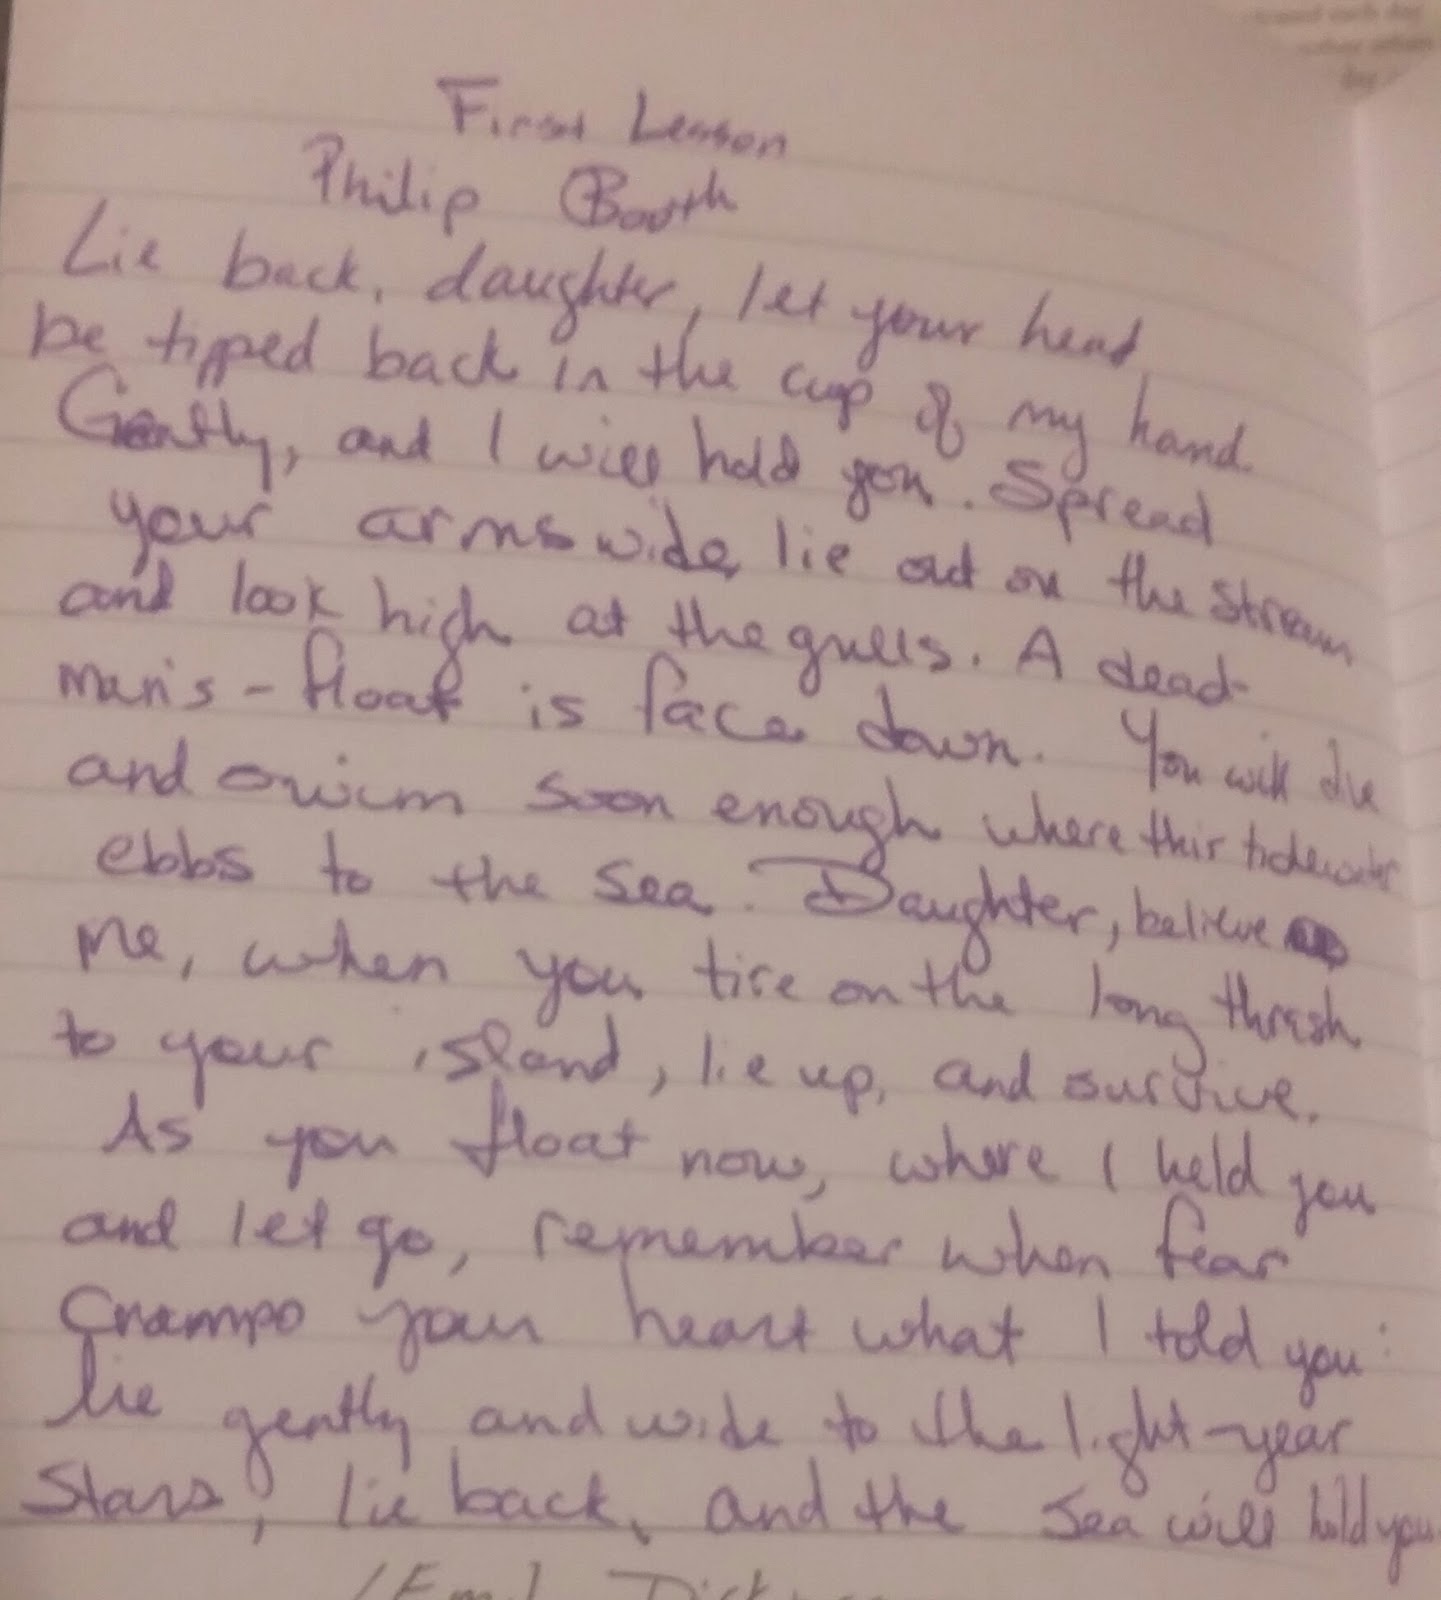 First Lesson
Philip Booth
Lie back, daughter, let your head
be tipped back in the cup of my hand.
Gently, and I will hold you. Spread
your arms wide, lie out on the stream
and look high at the gulls. A dead-
man's-float is face down. You will dive
and swim soon enough where this tidewater
ebbs to the sea. Daughter, believe
me, when you tire on the long thrash
to your island, lie up, and survive.
As you float now, where I held you
and let go, remember when fear
Cramps your heart what I told you:
lie gently and wide to the light-year
Stars, lie back, and the Sea will hold you.